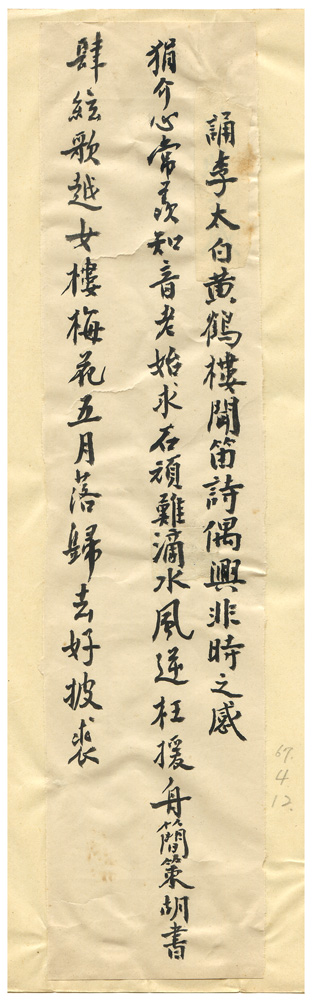 誦李太白黃鶴樓聞笛詩偶興非時之感
狷介心常羨知音老始求石頑難滴水風逆枉援舟簡策胡書
肆絃歌越女樓梅花五月落歸去好披裘
67.
4
12.